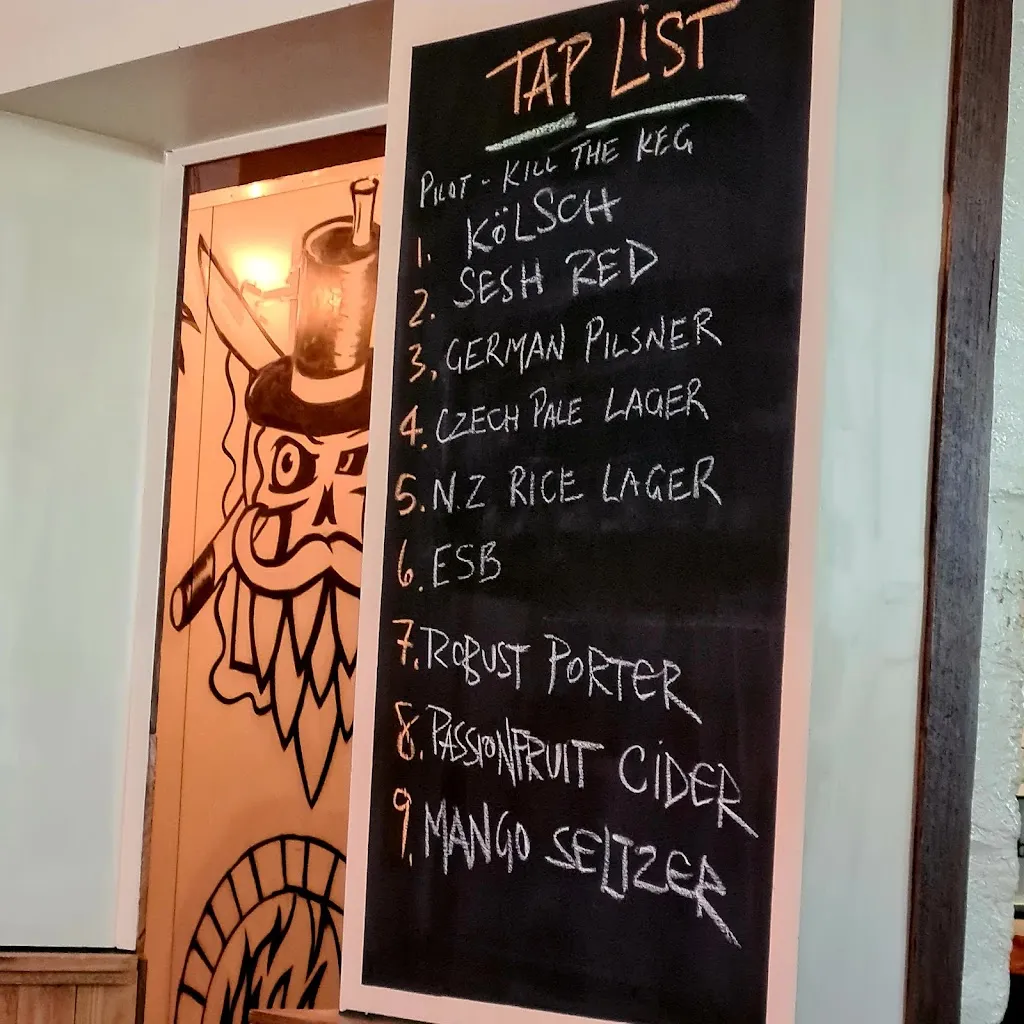 TAP LIST
PILOT - KILL THE KEG
1. KÖLSCH
2. SESH RED
3, GERMAN PILSNER
4. CZECH PALE LAGER
5. N.Z RICE LAGER
6. ESB
7. ROBUST PORTER
8. PASSIONFRUIT CIDER
9. MANGO SELTZER